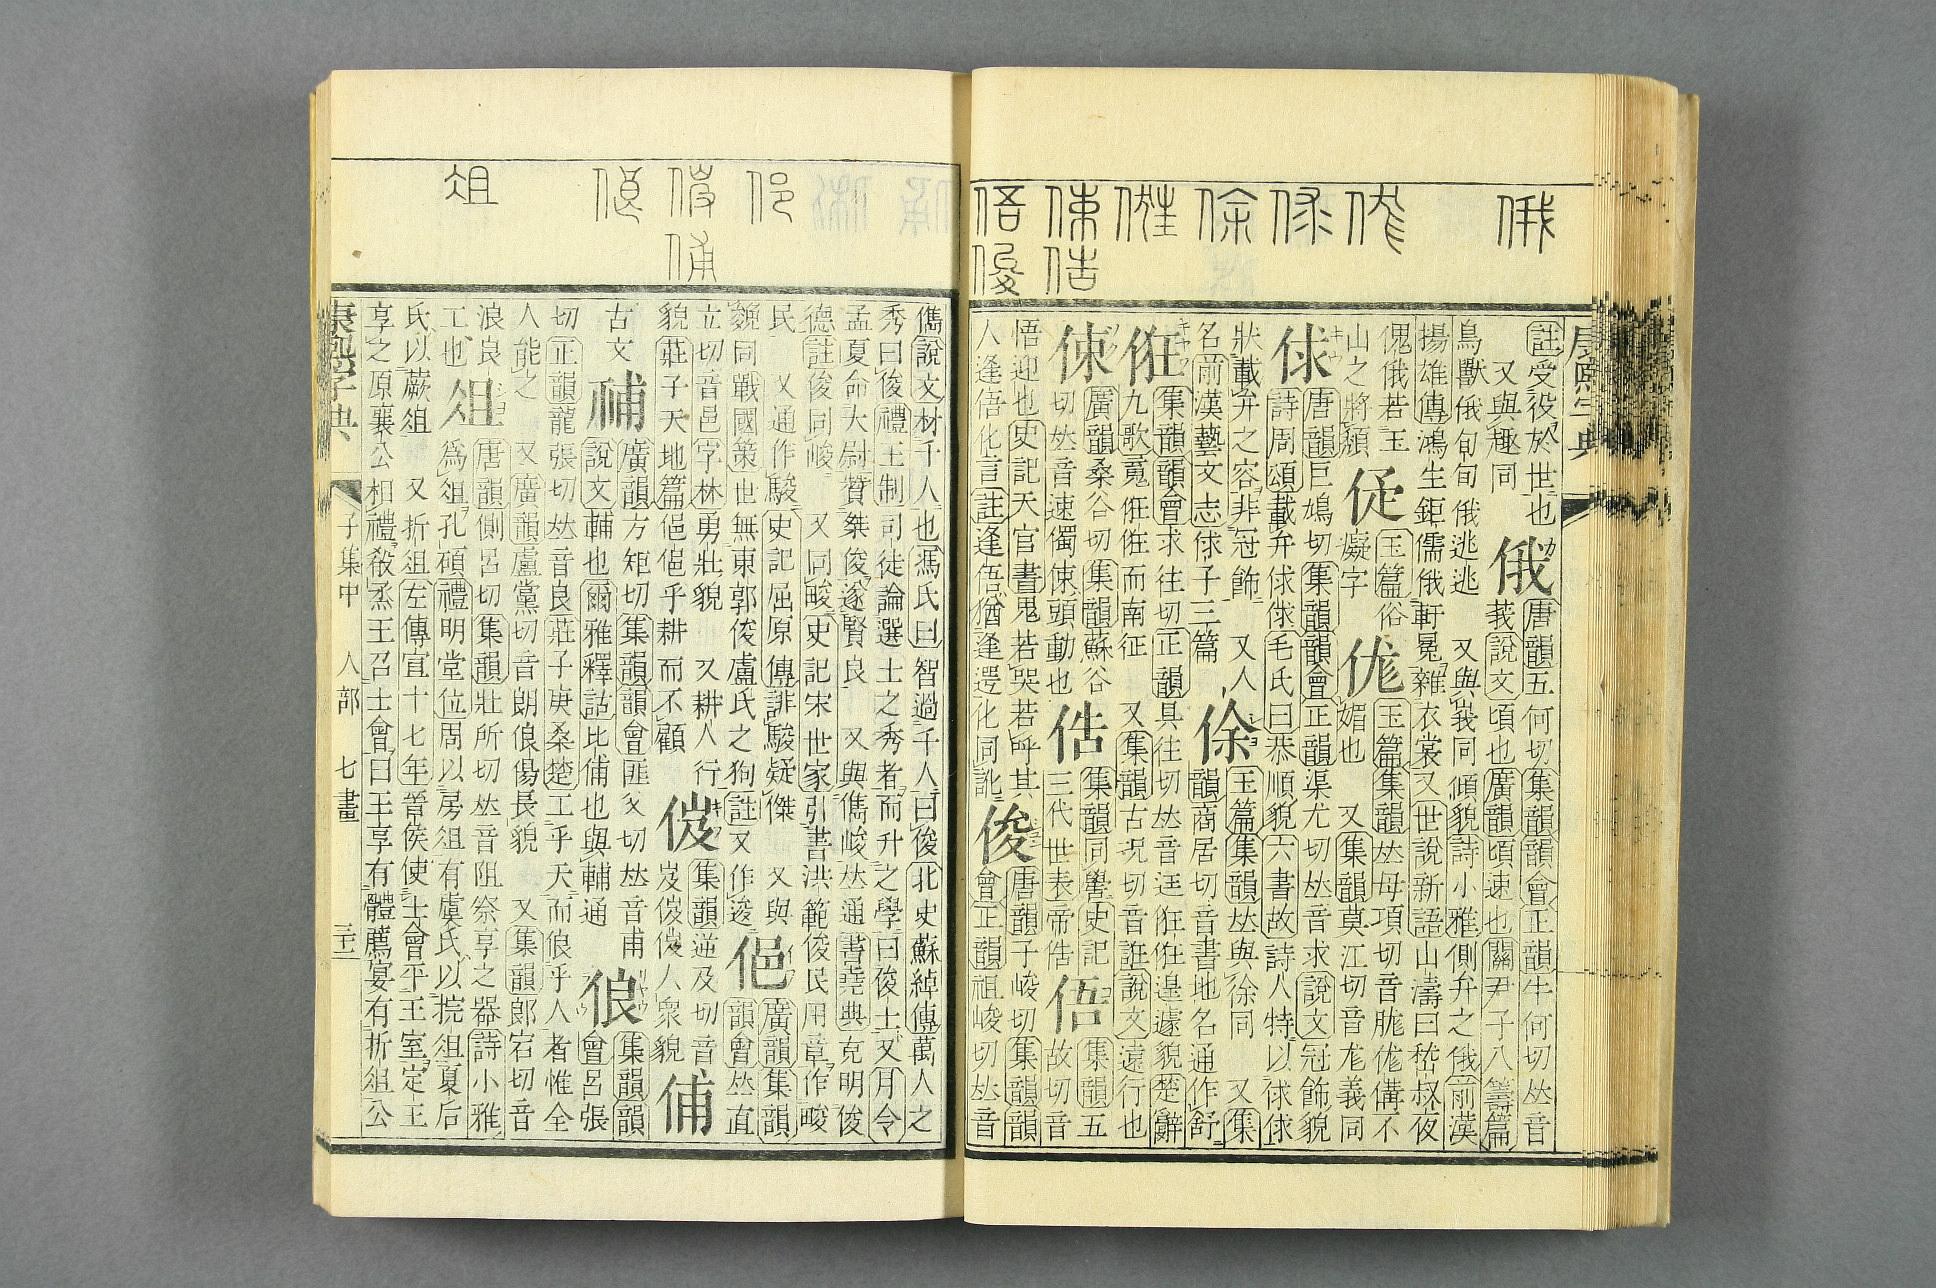 註受役於世也俄唐韻五何切集韻韻會正韻牛何切𠀤音
莪說文頃也廣韻頃速也關尹子八籌篇
又與趣同
鳥獸俄旬旬俄逃逃 又與義同傾貌詩小雅側弁之俄前漢
揚雄傳鴻生鉅儒俄軒冕雜衣裳又世說新語山濤曰嵆叔夜
傀俄若玉
山之將頹
玉篇俗
癡字
玉篇集韻𠀤母項切音胧㑻㑄不
媚也 又集韻莫江切音尨義同
俅唐韻巨鳩切集韻韻會正韻渠尤切𠀤音求說文冠飾貌
詩周頌載弁俅俅毛氏曰恭順貌六書故詩人特以俅俅
狀載弁之容非冠飾 又人
名前漢藝文志俅子三篇
徐玉篇集韻𠀤與徐同 又集
韻商居切音書地名通作舒
俇集韻韻會求往切正韻具往切𠀤音迋俇俇遑遽貌楚辭
九歌䰟俇俇而南征 又集韻古況切音誑說文遠行也
㑛廣韻桑谷切集韻蘇谷
切𠀤音速㒔㑛頭動也
俈集韻同嚳史記
三代世表帝俈
俉集韻五
故切音
悟迎也史記天官書鬼若哭若呼其
人逢俉化言註逢俉猶逢遻化同訛
俊唐韻子峻切集韻韻
會正韻祖峻切𠀤音
儁說文材千人也馮氏曰智過千人曰俊北史蘇綽傳萬人之
秀曰俊禮王制司徒論選士之秀者而升之學曰俊士又月令
孟夏命大尉贊桀俊遂賢良 又與儁峻𠀤通書堯典克明俊
德註俊同峻 又同畯史記宋世家引書洪範俊民用章作畯
民 又通作駿史記屈原傳誹駿疑傑 又與
㕙同戰國策世無東郭俊盧氏之狗註又作逡
俋廣韻集韻
韻會𠀤直
立切音邑字林勇壯貌 又耕人行
貌莊子天地篇俋俋乎耕而不顧
集韻逆及切音
岌 人衆貌
俌
古文䩉廣韻方矩切集韻韻會匪父切𠀤音甫
說文輔也爾雅釋詁比俌也與輔通
俍集韻韻
會呂張
切正韻龍張切𠀤音良莊子庚桑楚工乎天而俍乎人者惟全
人能之 又廣韻盧黨切音朗俍傷長貌 又集韻郎宕切音
浪良
工也
俎唐韻側呂切集韻壯所切𠀤音阻祭享之器詩小雅
爲俎孔碩禮明堂位周以房俎有虞氏以梡俎夏后
氏以蕨俎 又折俎左傳宣十七年晉侯使士會平王室定王
享之原襄公相禮殽烝王召士會曰王享有體薦宴有折俎公
康熙字典 子集中 人部 七畫 三十二